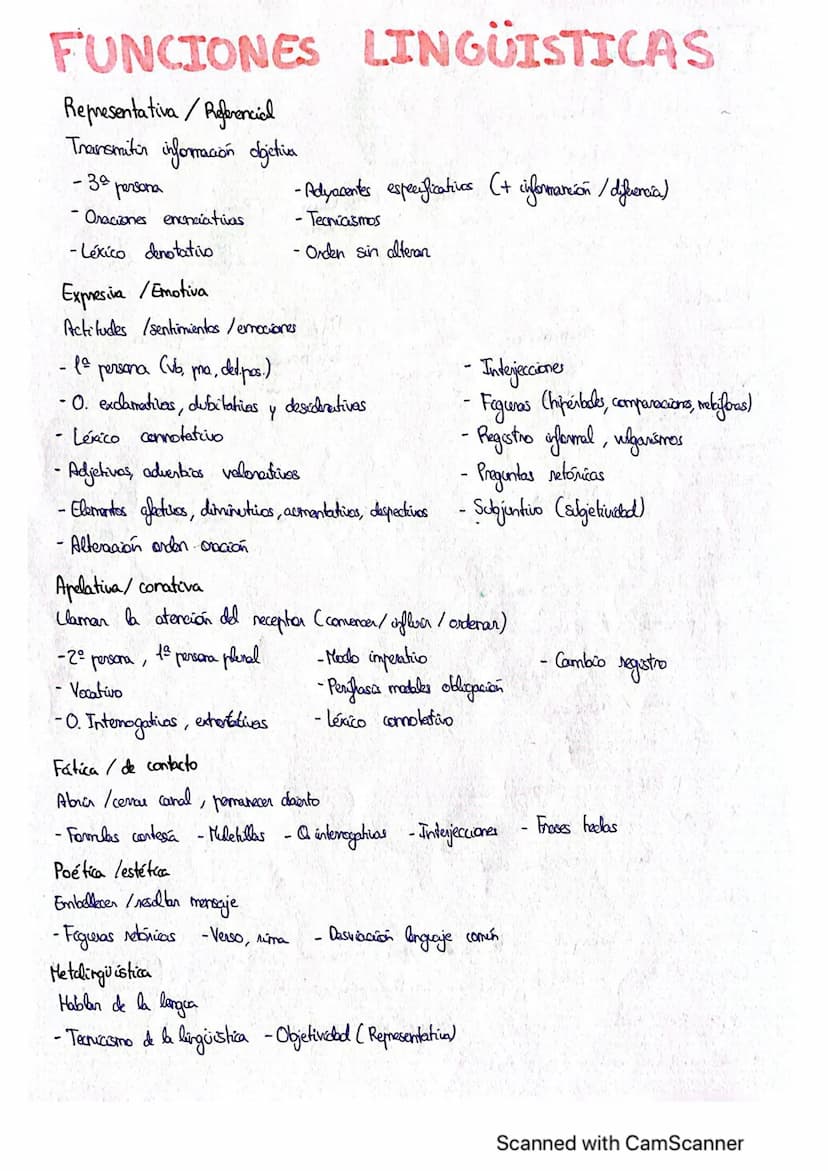 FUNCIONES LINGÜISTICAS
Representativa / Referencial
Transmitir información objetiva
- 3ª persona - Adyacentes especificativos (+ información / diferencia)
- Oraciones enunciativas - Tecnicismos
- Léxico denotativo - Orden sin alterar
Expresiva / Emotiva
Actitudes / sentimientos / emociones
- 1ª persona (vb, pna, det.pos.) - Interjecciones
- O. exclamativas, dubitativas y desiderativas - Figuras (hipérboles, comparaciones, metáforas)
- Léxico connotativo - Registro informal, vulgarismos
- Adjetivos, adverbios valorativos - Preguntas retóricas
- Elementos afectivos, diminutivos, aumentativos, despectivos - Subjuntivo (subjetividad)
- Alteración orden oración
Apelativa / conativa
Llamar la atención del receptor (convencer / influir / ordenar)
- 2ª persona, 1ª persona plural - Modo imperativo - Cambio registro
- Vocativo - Perífrasis modales obligación
- O. Interrogativas, exhortativas - Léxico connotativo
Fática / de contacto
Abrir / cerrar canal, permanecer abierto
- Formulas cortesía - Muletillas - O. interrogativas - Interjecciones - Frases hechas
Poética / estética
Embellecer / resaltar mensaje
- Figuras retóricas - Verso, rima - Desviación lenguaje común
Metalingüística
Hablar de la lengua
- Tecnicismo de la lingüística - Objetividad (Representativa)
Scanned with CamScanner